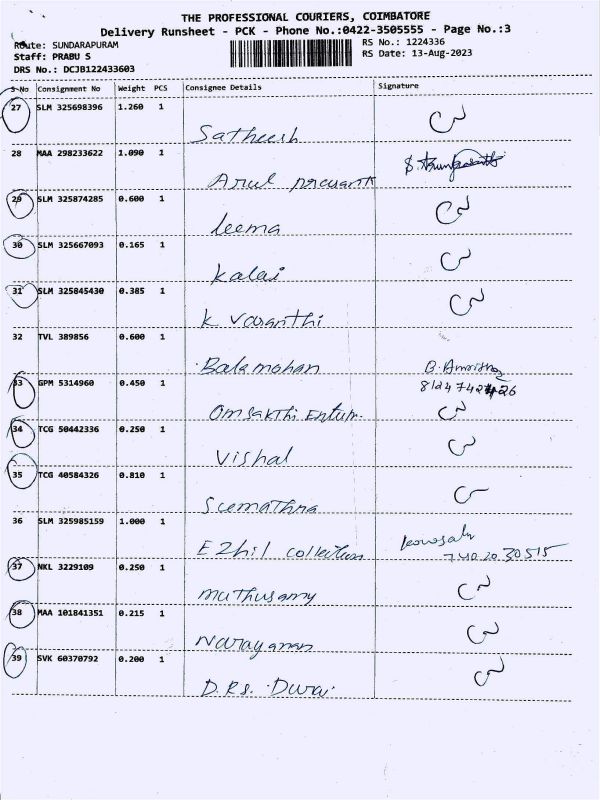 THE PROFESSIONAL COURIERS, COIMBATORE
Delivery Runsheet - PCK - Phone No.:0422-3505555 - Page No.:3
Route: SUNDARAPURAM RS No.: 1224336
Staff: PRABU S RS Date: 13-Aug-2023
DRS No.: DCJB122433603
S No Consignment No Weight PCS Consignee Details Signature
27 SLM 325698396 1.260 1
Satheesh
28 MAA 298233622 1.090 1
Arul prasanth
29 SLM 325874285 0.600 1
leema
30 SLM 325667093 0.165 1
Kalai
31 SLM 325845430 0.385 1
K Vasanthi
32 TVL 389856 0.600 1
Balamohan
33 GPM 5314960 0.450 1
Omsakthi Enter.
34 TCG 50442336 0.250 1
Vishal
35 TCG 40584326 0.810 1
36 SLM 325985159 1.000 1
Ezhil collection
7402030515
37 NKL 3229109 0.250 1
muthusamy
38 MAA 101841351 0.215 1
Narayanan
39 SVK 60370792 0.200 1
D.Rs. Durai